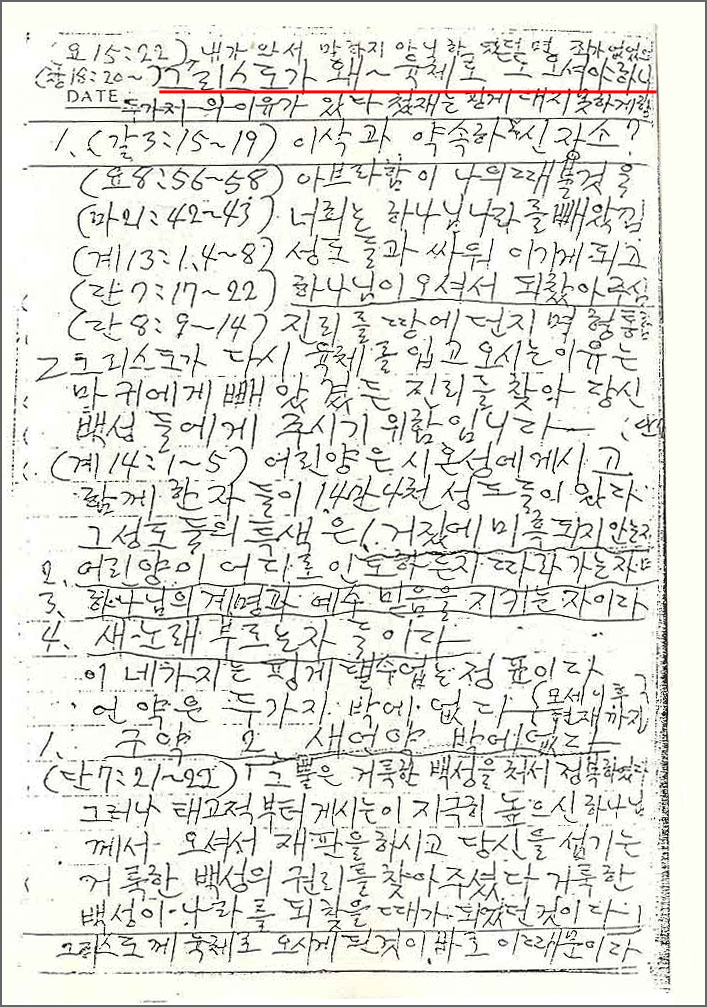 (요15:22), 내가 와서 말하지 안 했던들 죄가 없었
(창18:20~) 그리스도가 왜~ 육체로 또 오셔야 하나
DATE 두가지의 이유가 있다 첫재는 핑게 대지 못하게함
1. (갈3:15~19) 이삭과 약속하신 자손?
(요8:56~58) 아브라함이 나의 때 볼것을
(마21:42~43) 너희는 하나님 나라를 빼앗김
(계13:1.4~8) 성도들과 싸워 이기게 되고
(단7:17~22) 하나님이 오셔서 되찾아 주심
(단8:9~14) 진리를 땅에 던지며 형통함
2 그리스도가 다시 육체를 입고 오시는 이유는
마귀에게 빼앗겼든 진리를 찾아 당신
백성들에게 주시기 위함입니다ㅡ
(계14:1~5) 어린양은 시온성에 게시고
함께한 자들이 14만4천 성도들이 왔다
그성도들의 특생은 1. 거짓에 미혹되지 안는자
2. 어린양이 어디로 인도하든지 따라가는자며
3. 하나님의 계명과 예수 믿음을 지키는 자이라
4. 새노래 부르는자들이다
이 네가지는 핑게 댈수 업는 정표이다
언약은 두가지 박에 없다ㅡ (모세이후 현재까지)
1. 구약 2. 새언약 박에 없다ㅡ
(단7:21~22) 「그 뿔은 거룩한 백성을 처서 정복하였다
그러나 태고적부터 게시는이 지극히 높으신 하나님
께서 오셔서 재판을 하시고 당신을 섬기는
거룩한 백성의 권리를 찾아주셨다 거룩한
백성이 나라를 되찾을 때가 되었던 것이다」
그리스도께 육체로 오시게 된것이 바로 이때문이라